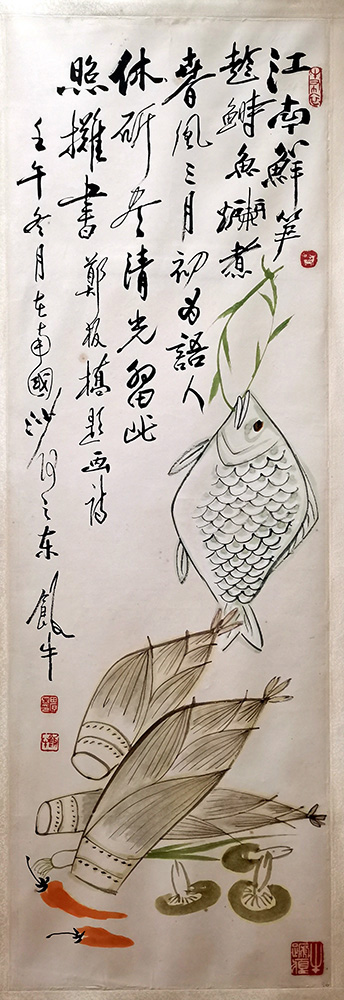 江南鮮笋
趁鰣魚爛煮
春風三月初为語人
休斫尽清光留此
照攤書 鄭板橋题画诗
壬午冬月在南國沙河之东 飯牛